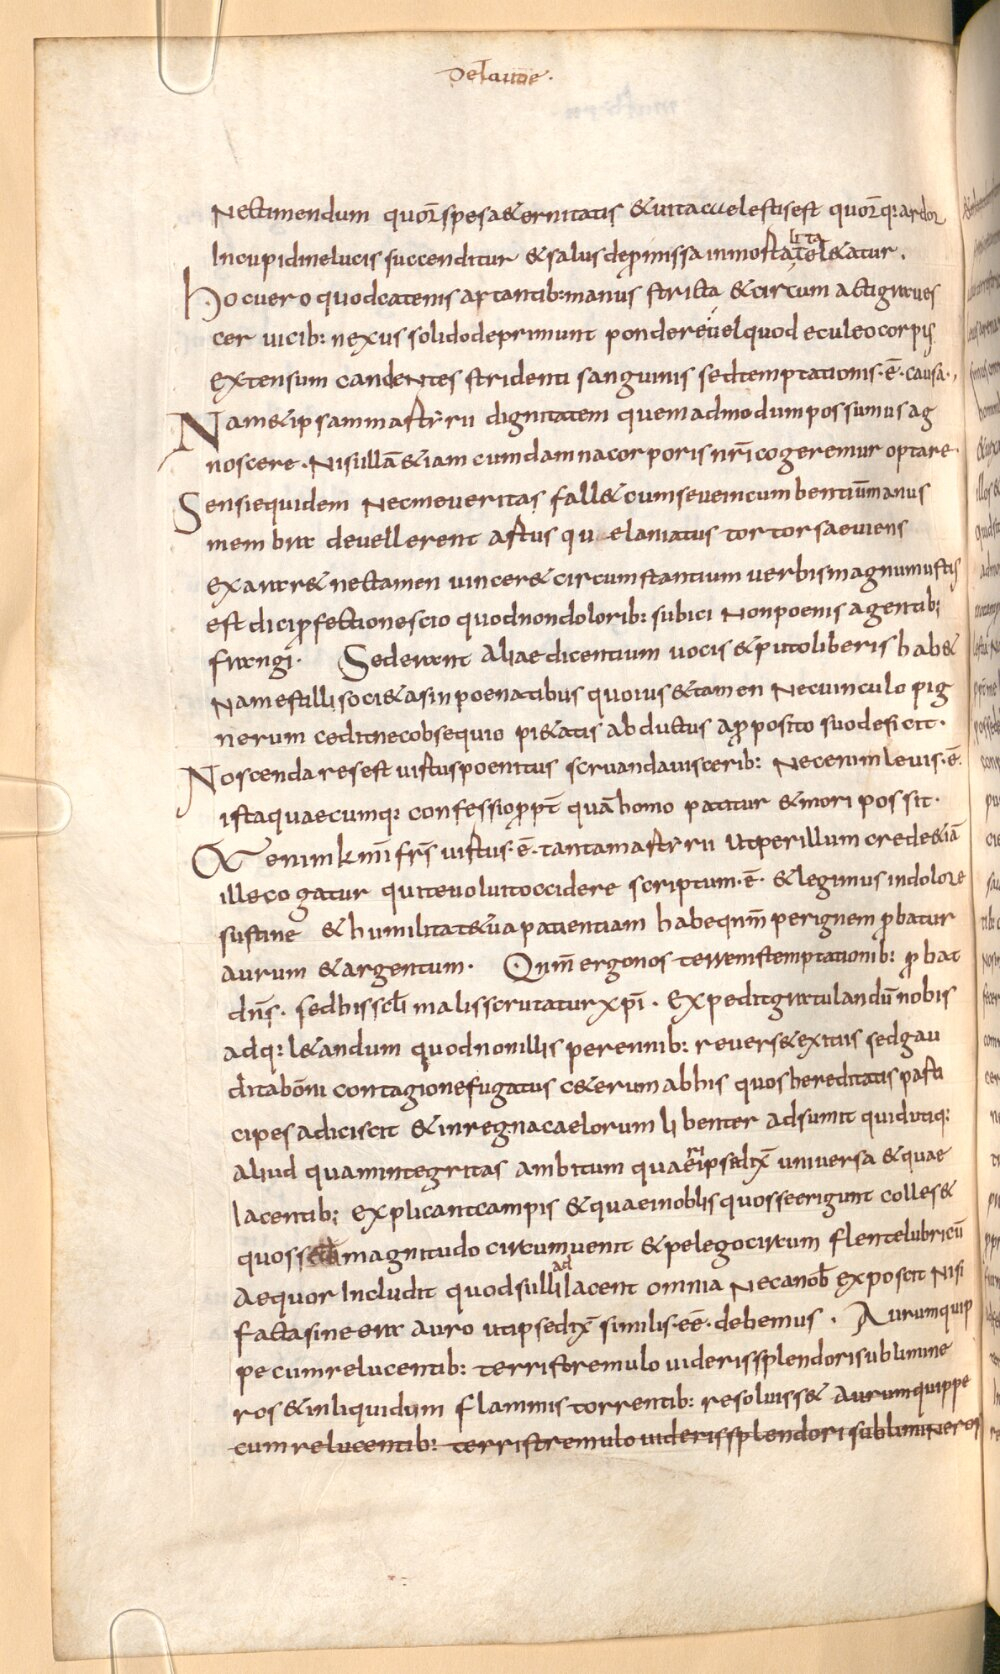 De laude.
Nec timendum quoꝝ spes aeternitatis & uita caelestis est quoꝝq: ardor
In cupidine lucis succenditur & salus depmissa inmorta lita te l&atur.
Hoc uero quod catenis artantib: manus stricta & circum acti graues
cer uicib: nexus solido deprimunt pondere uel quod eculeo corpus
extensum candentes stridenti sanguinis sed temptationis ·ē· causa.
Nam & ipsam martyrii dignitatem quemadmodum possumus ag
noscere. Nisi ullā & iam cum damna corporis nrī cogeremur optare
Sensi equidem Nec me ueritas fall& cum seue incumbentiū manus
membra deuellerent artus qu elaniatus tortor saeuiens
exarar& nec tamen uincer& circumstantium uerbis magnum istis
est dici pfectio nescio quod non dolorib: subici Non poenis agentib:
frangi. Sed erant aliae dicentium uocis & puto liberis hab&
Nam est illi soci& as in poenatibus quoius & tamen Nec uinculo pig
nerum cedit nec obsequio pi&atis abductus a pposito suo deficit.
Noscenda res est uirtus poenitus scrutanda uiscerib: Nec enim leuis ·ē·
ista quaecumq: confessio ppt quā homo patitur & mori possit.
& enim kmī frs̄ uirtus ·ē· tanta martyrii ut per illum crede& iā
ille cogatur qui te uoluit occidere scriptum ·ē· & legimus in dolore
sustine & humilitate tua patientiam habe qnm̄ per ignem pbatur
aurum & argentum. Qnm̄ ergo nos terrenis temptationib: p bat
dn̄s. sed his scli malis scrutatur xpī. Expedit gratulandū nobis
adq: l&andum quod non illis perennib: reuers& exitiis sed gau
dit abōni contagione fugatus c&erum ab his quos hereditatis parti
cipes adiciscit & in regna caelorum libenter adsumit quid utiq:
aliud quam integritas ambitum quaeri ipse dix̄ uniuersa & quae
lacentib: explicant campis & quae in oblis quos se erigunt colles &
quos magnitudo circumuenit & pelego circum flente lubricū
aequor Includit quod sulli ad lacent omnia Nec a nob̄ exposcit Nisi
facta sincera auro ut ipse dix̄ similis ·eē· debemus. Aurum quip
pe cum relucentib: terris tremulo uideris splendori sublimine
ros & in liquidum flammis torrentib: resoluiss& aurum quippe
cum relucentib: terris tremulo uideris splendori sublimineros